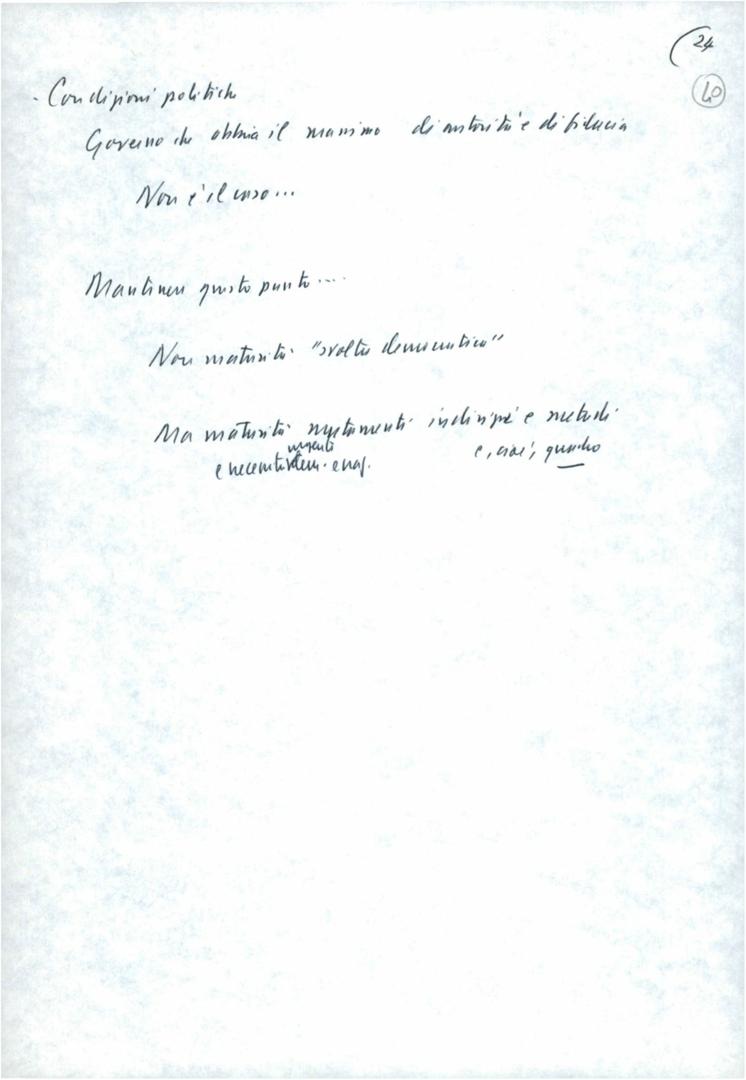 (24
40
- Condizioni politiche
Governo che abbia il massimo di autorità e di fiducia
Non è il caso...
Mantenere questo punto...
Non maturità "svolta democratica"
Ma maturità mutamenti indirizzi e metodi
urgenti
e necessità e, cioè, quadro